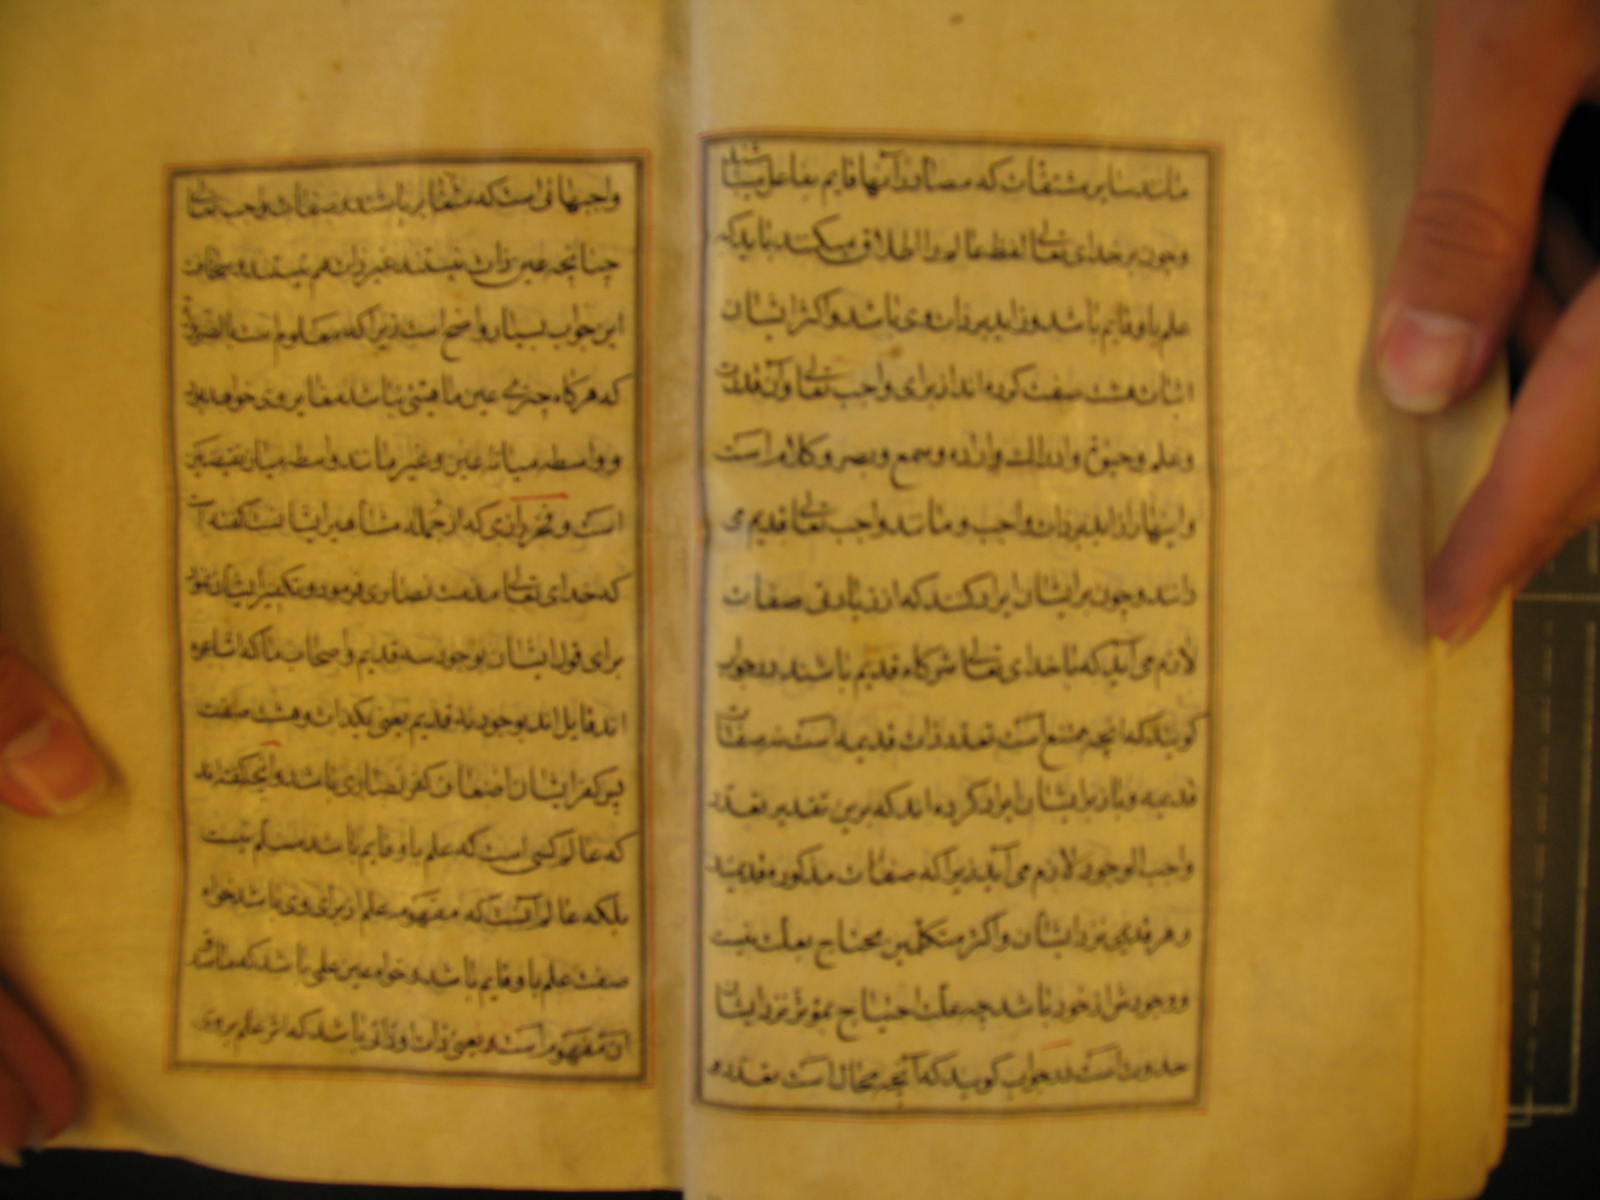 مانند سایر مشتقات که مصادر آنها قایم بفاعل میباشند
و چون بر خدای تعالی لفظ عالم را اطلاق میکنند باید که
علم باو قایم باشد و زاید بر ذات وی باشد و اکثر ایشان
اثبات هشت صفت کرده اند از برای واجب تعالی و آن قدرت
و علم و حیوة و ادراک و اراده و سمع و بصر و کلام است
و اینها را زاید بر ذات واجب و مانند واجب تعالی قدیم می
دانند و چون بر ایشان ایراد کنند که از زیادتی صفات
لازم می آید که با خدای تعالی شرکاء قدیم باشند در جواب
گویند که آنچه ممتنع است تعدد ذات قدیمه است نه صفات
قدیمه و باز بر ایشان ایراد کرده اند که برین تقدیر تعدد
واجب الوجود لازم می آید زیرا که صفات مذکوره قدیمند
و هر قدیمی نزد ایشان و اکثر متکلمین محتاج بعلت نیست
و وجودش از خود باشد چه علت احتیاج بمؤثر نزد ایشان
حدوث است در جواب گویند که آنچه محال است تعدد
واجبهائی است که متغایر باشند و صفات واجب تعالی
چنانچه عین ذات نیستند غیر ذات هم نیستند و سخافت
این جواب بسیار واضح است زیرا که معلوم است بالضرورة
که هرگاه چیزی عین ماهیتی نباشد مغایر وی خواهد بود
و واسطه میانه عین و غیر مانند واسطه میان نقیضین
است و فخر رازی که از جمله مشاهیر ایشانست گفته است
که خدای تعالی مذمت نصاری فرمود و تکفیر ایشان نمود
برای قول ایشان بوجود سه قدیم و اصحاب ما که اشاعره
اند قایل اند بوجود نه قدیم یعنی یکذات و هشت صفت
پس کفر ایشان اضعاف کفر نصاری باشد و آنچه گفته اند
که عالم کسی است که علم باو قایم باشد مسلم نیست
بلکه عالم آنست که مفهوم علم از برای وی باشد خواه
صفت علم باو قایم باشد و خواه عین علم باشد که مصداق
آن مفهوم است و یعنی ذات او ذاتی باشد که اثر علم بر وی